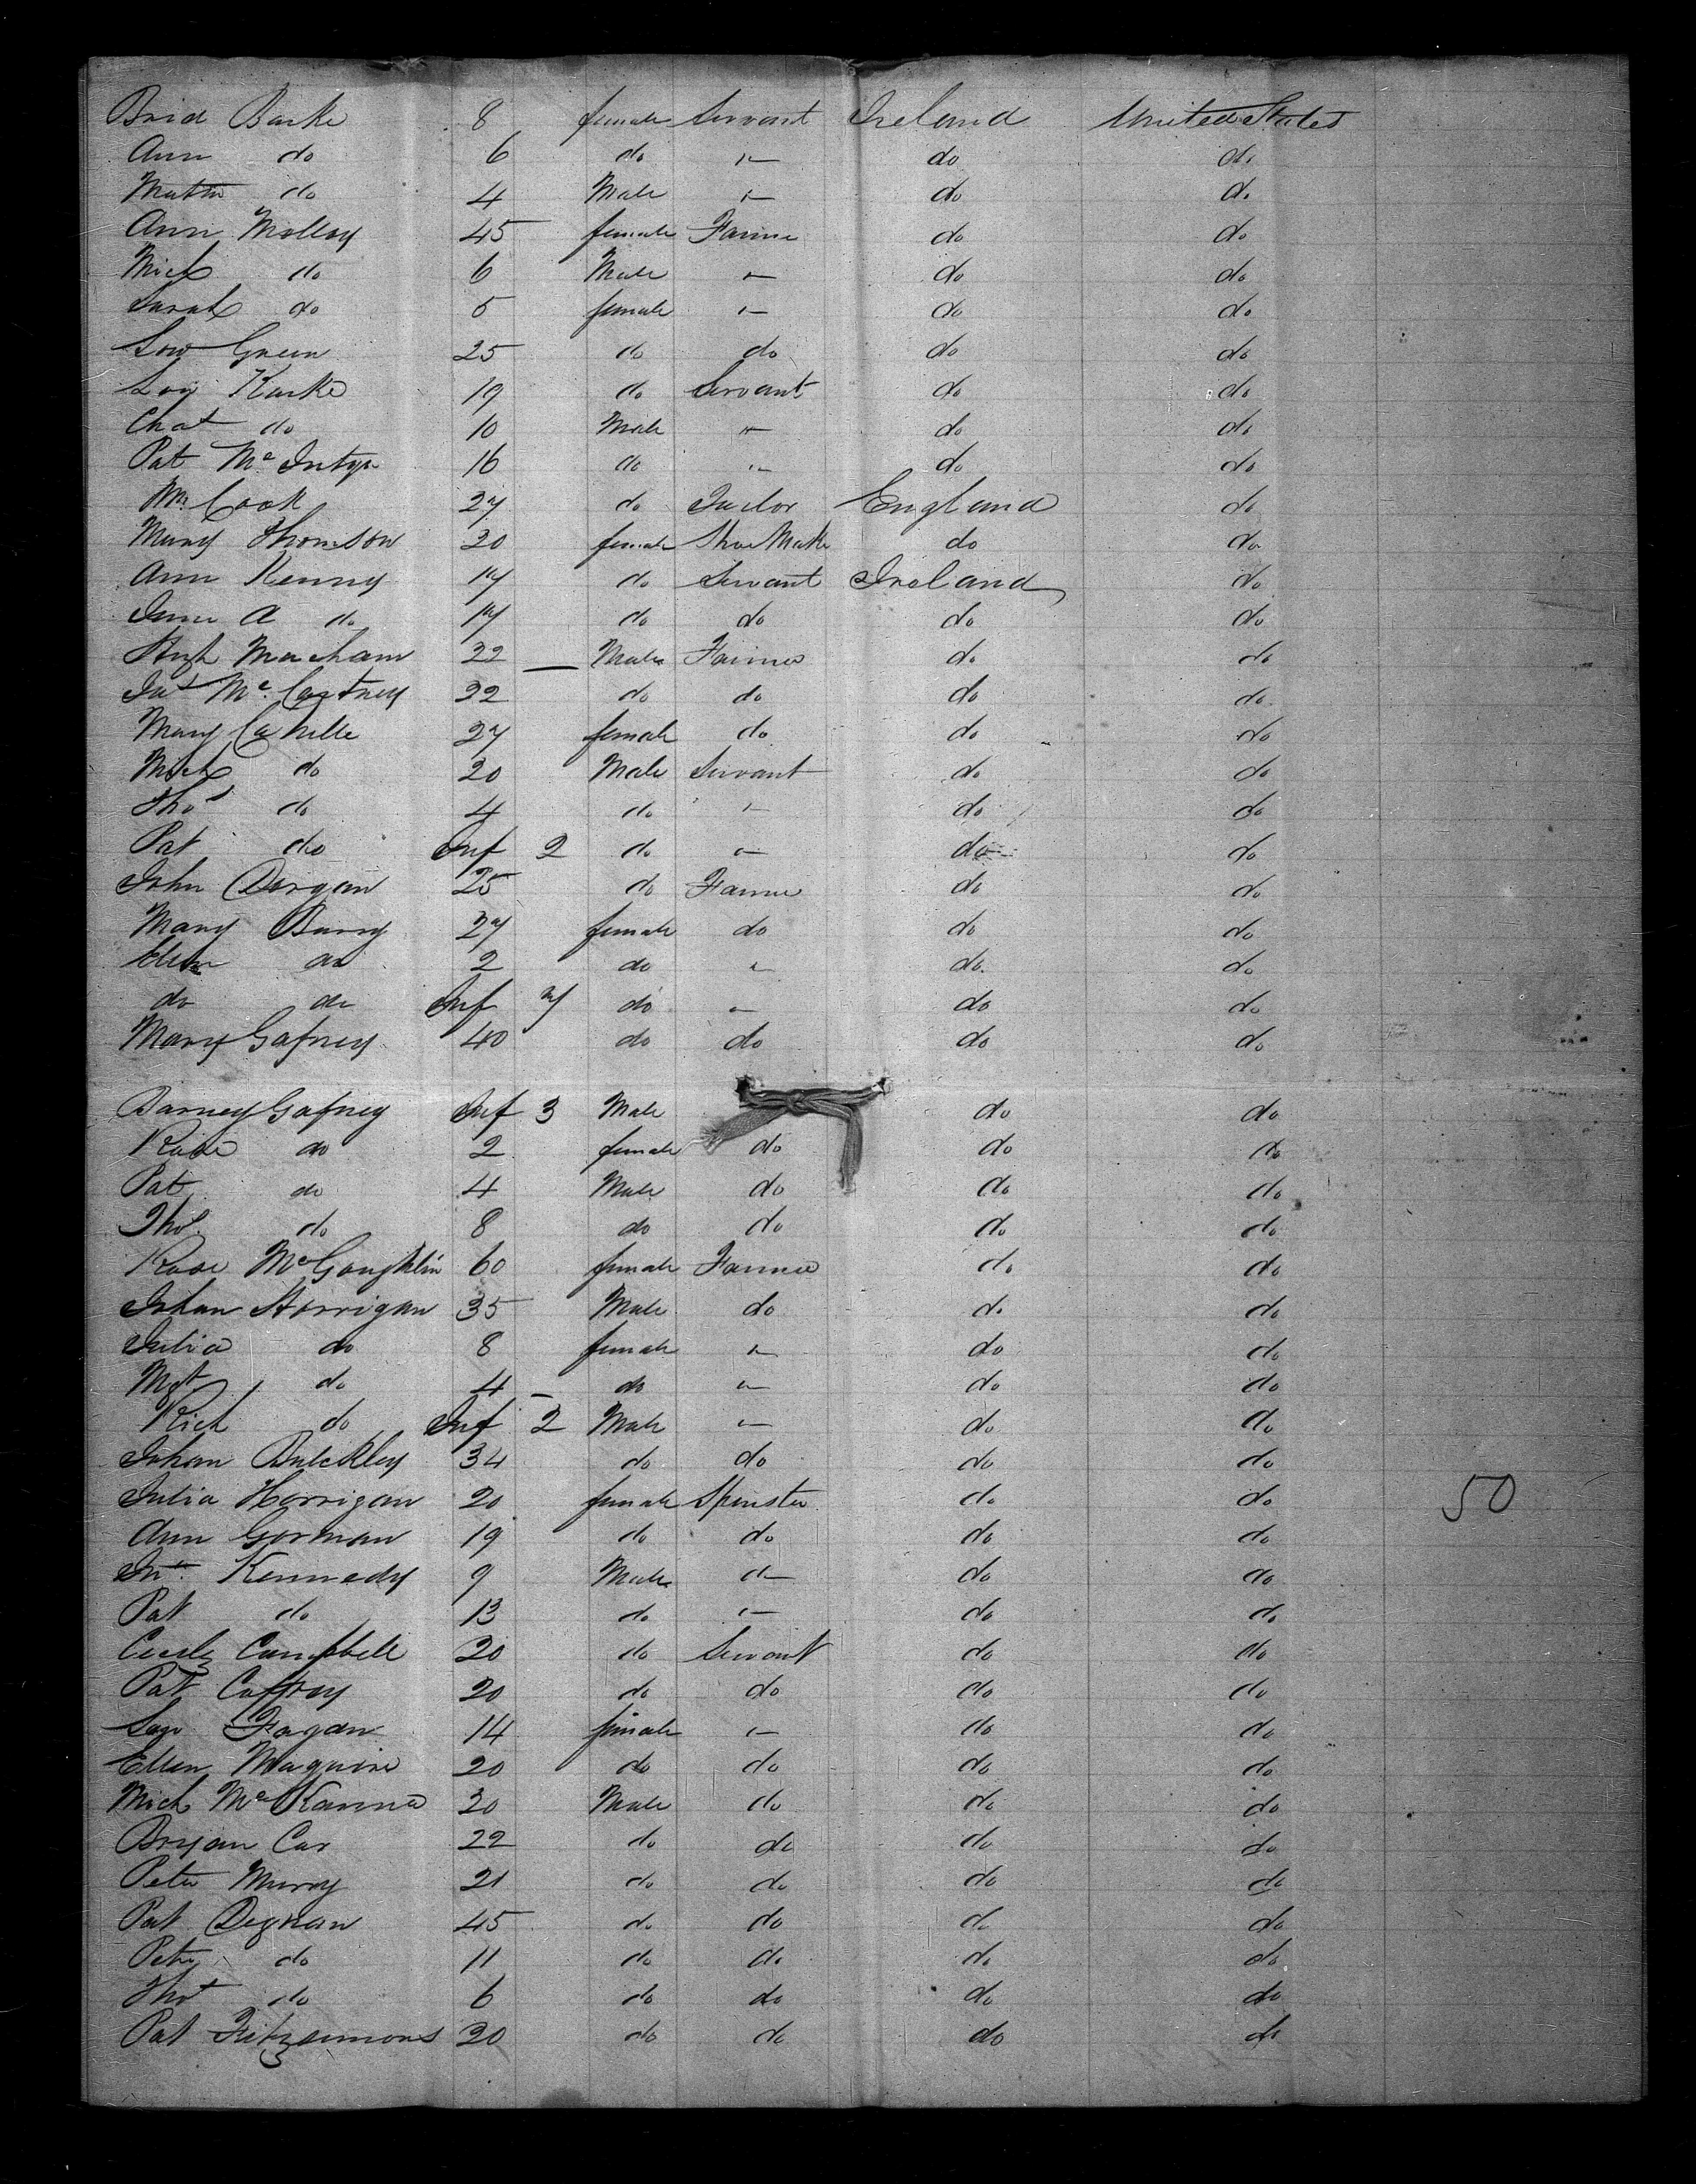 Brid Burke 8 female Servant Ireland United States
Ann do 6 do " do do
do 4 Male " do do
Ann Molloy 45 female Farmer do do
Mich do 6 Male " do do
Sarah do 5 female " do do
Green 25 do do do do
19 do Servant do do
do 10 Male " do do
Pat McIntyr 16 do " do do
Wm Cook 27 do England do
Mary Thomson 20 female Shoe Make do do
Ann Kenny 17 do Servant Ireland do
A do 17 do do do do
Hugh 22 — Male Farmer do do
Jas McCartney 22 do do do do
Mary 27 female do do do
Mich do 20 Male Servant do do
Thos do 4 do " do do
Pat do Inf 2 do " do do
John Dorgan 25 do Farmer do do
Mary Barry 27 female do do do
Ellen do 2 do " do do
do do Inf 7 do " do do
Mary Gafney 40 do do do do
Barney Gafney Inf 3 Male do do
Rose do 2 female do do do
Pat do 4 Male do do do
Thos do 8 do do do do
Rose 60 female Farmer do do
Johan Horrigan 35 Male do do do
Julia do 8 female " do do
Mgt do 4 – do " do do
Rich do Inf 2 Male " do do
Johan Bulckley 34 do do do do
Julia Horrigan 20 female Spinster do do 50
Ann Gorman 19 do do do do
Kennedy 9 Male do do
Pat do 13 do " do do
Campbell 20 do Servant do do
Pat Caffrey 20 do do do do
Fagan 14 female " do do
Ellen Maguire 20 do do do do
Mich McKanna 20 Male do do do
Bryan Car 22 do do do do
Peter Murry 21 do do do do
Pat Degnan 45 do do do do
Peter do 11 do do do do
Thos do 6 do do do do
Pat Fitzsimons 20 do do do do